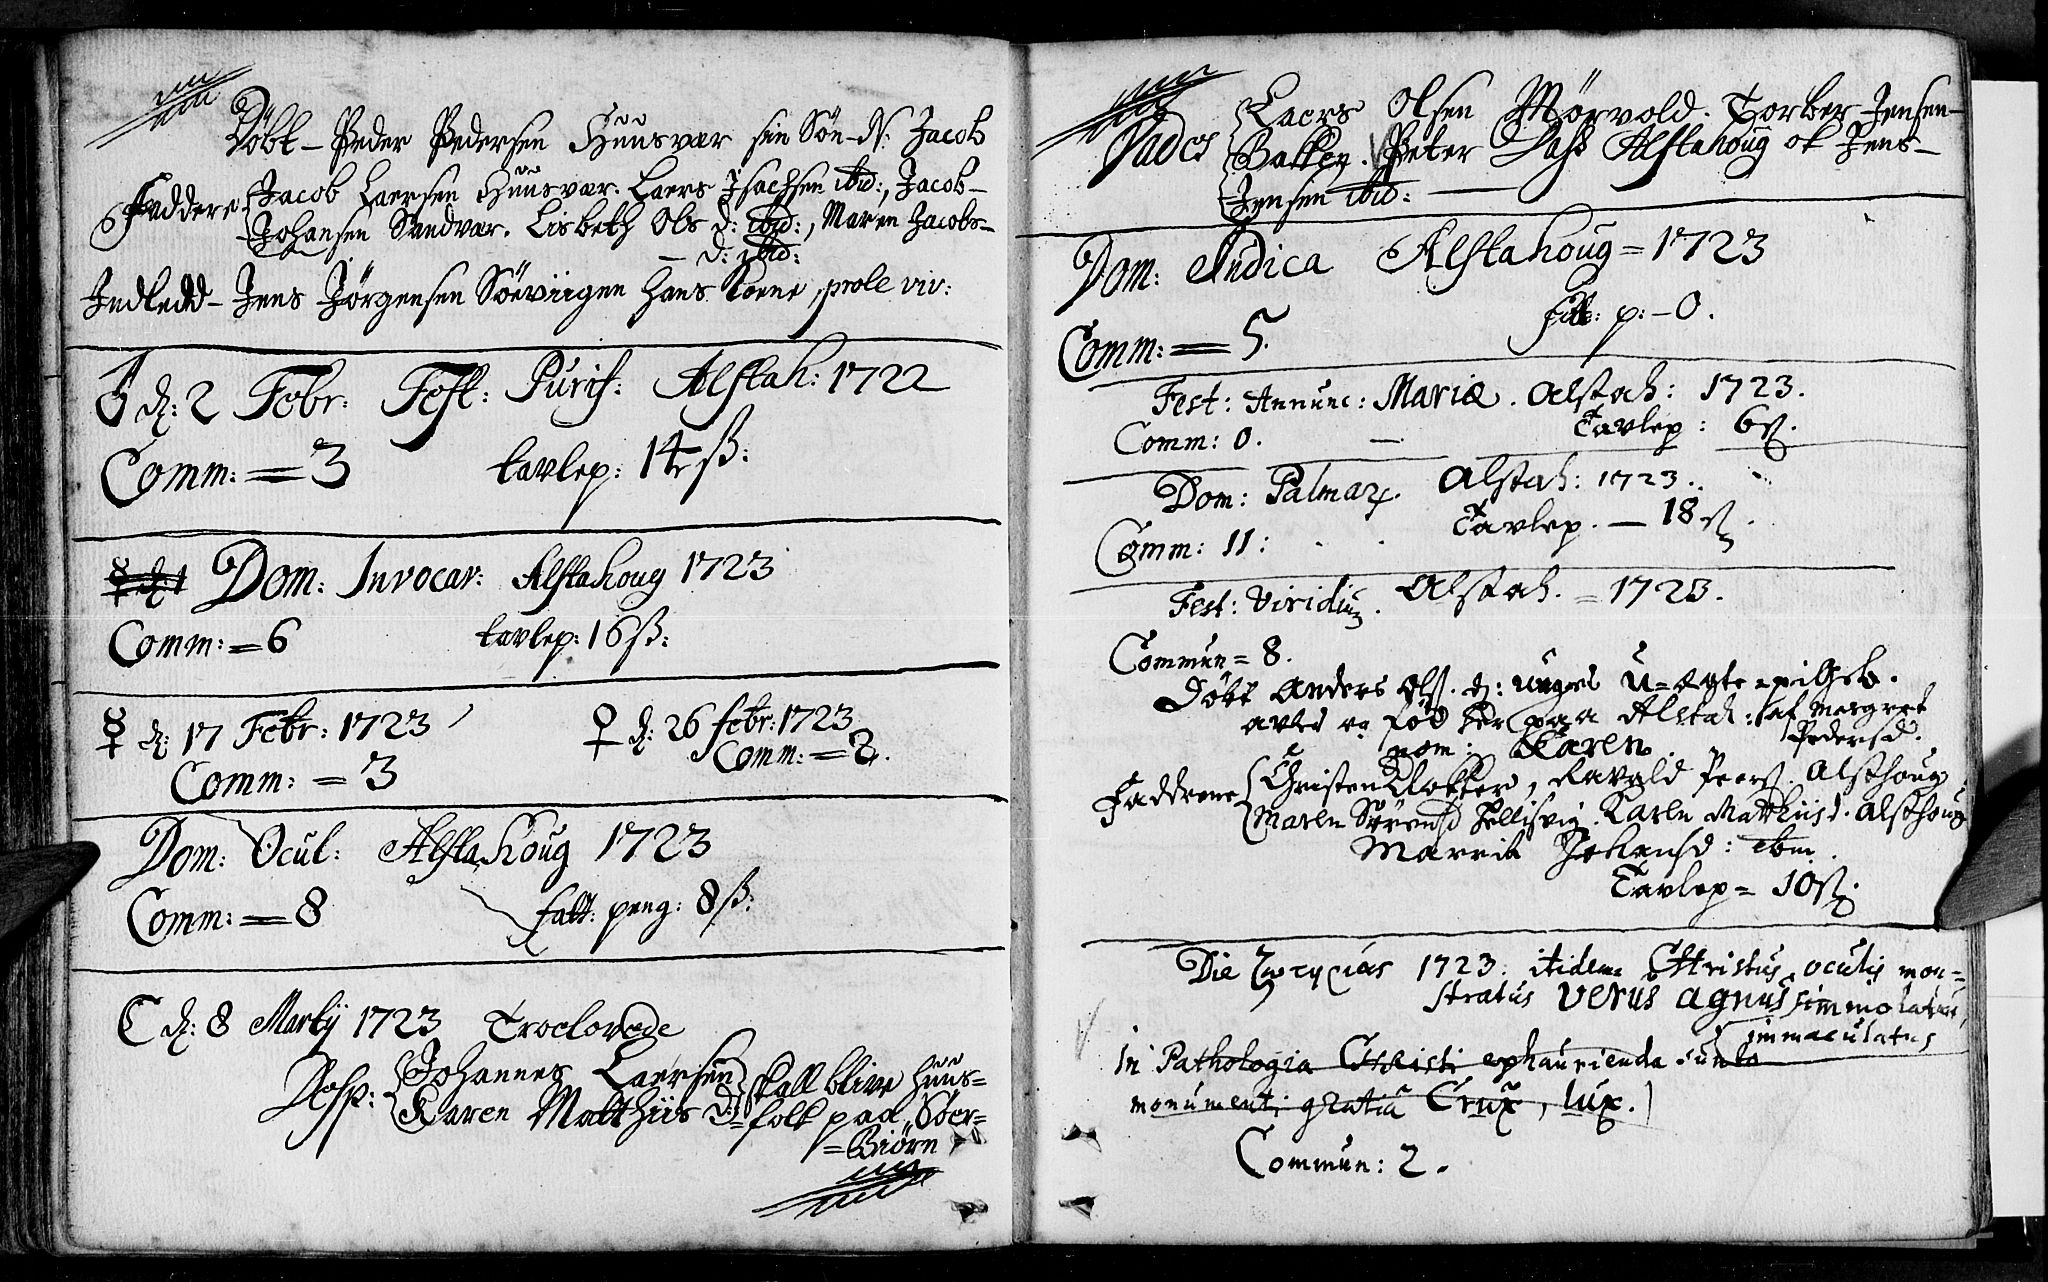 Döbt – Peder Pedersen Huusvær sin Sön – N: Jacob
Faddere Jacob Laersen Huusvær. Laers Isachsen ibid:, Jacob –
Johansen Sandvær. Lisbeth Ols d: ibid:, Maren Jacobs –
– d: ibid:
Indledd – Jens Jörgensen Söeviigen hans Kone, prole viv:
d: 2 Febr: Fest: Purif: Alstah: 1722
Comm: = 3 tavlep: 14 ß:
Dom: Invocav: Alstahoug 1723
Comm: = 6 tavlep: 16 ß:
☿ d: 17 Febr: 1723
Comm: = 3
♀ d: 26 febr: 1723
Comm: = 2.
Dom: Ocul: Alstahoug 1723
Comm: = 8 fatt: peng: 8 ß:
☾ d: 8 Martij 1723 Troelovede
Desp: Johannes Laersen skall blive Huus=
Karen Matthiis d: folk paa Söer=
=Biörn
Vades Laers Olsen Mörvold. Torber Jensen –
Bakken. Peter Dass Alstahoug ok Jens –
Jensen ibid:
Dom: Judica Alstahoug = 1723
fatt: p: – 0.
Comm: = 5.
Fest: Annunc: Mariæ. Alstah: 1723.
Comm: 0. – Tavlep: 6 ß.
Dom: Palmar. Alstah: 1723.
Comm: 11: Tavlep. – 18 ß.
Fest: Viridium. Alstah. = 1723.
Commun = 8.
Döbt Anders Ols. d: unges U=ægte
avlet og föd her paa Alstah: af Margret
Pedersd.
nom: Karen.
Faddrene Christen Klokker, Ravald Peers. Alsthoug
Maren Sörensd Hellisvig. Karen Matthiisd. Alsthoug
Marrit Johansd: ibm.
Tavlep = 10 ß.
Die 1723: itidem Christus oculis mon=
stratus verus agnus immolatus,
immaculatus
In Pathologia Christi exhaurienda sunto
monumenti gratiâ Crux, lux.
Commun: 2.